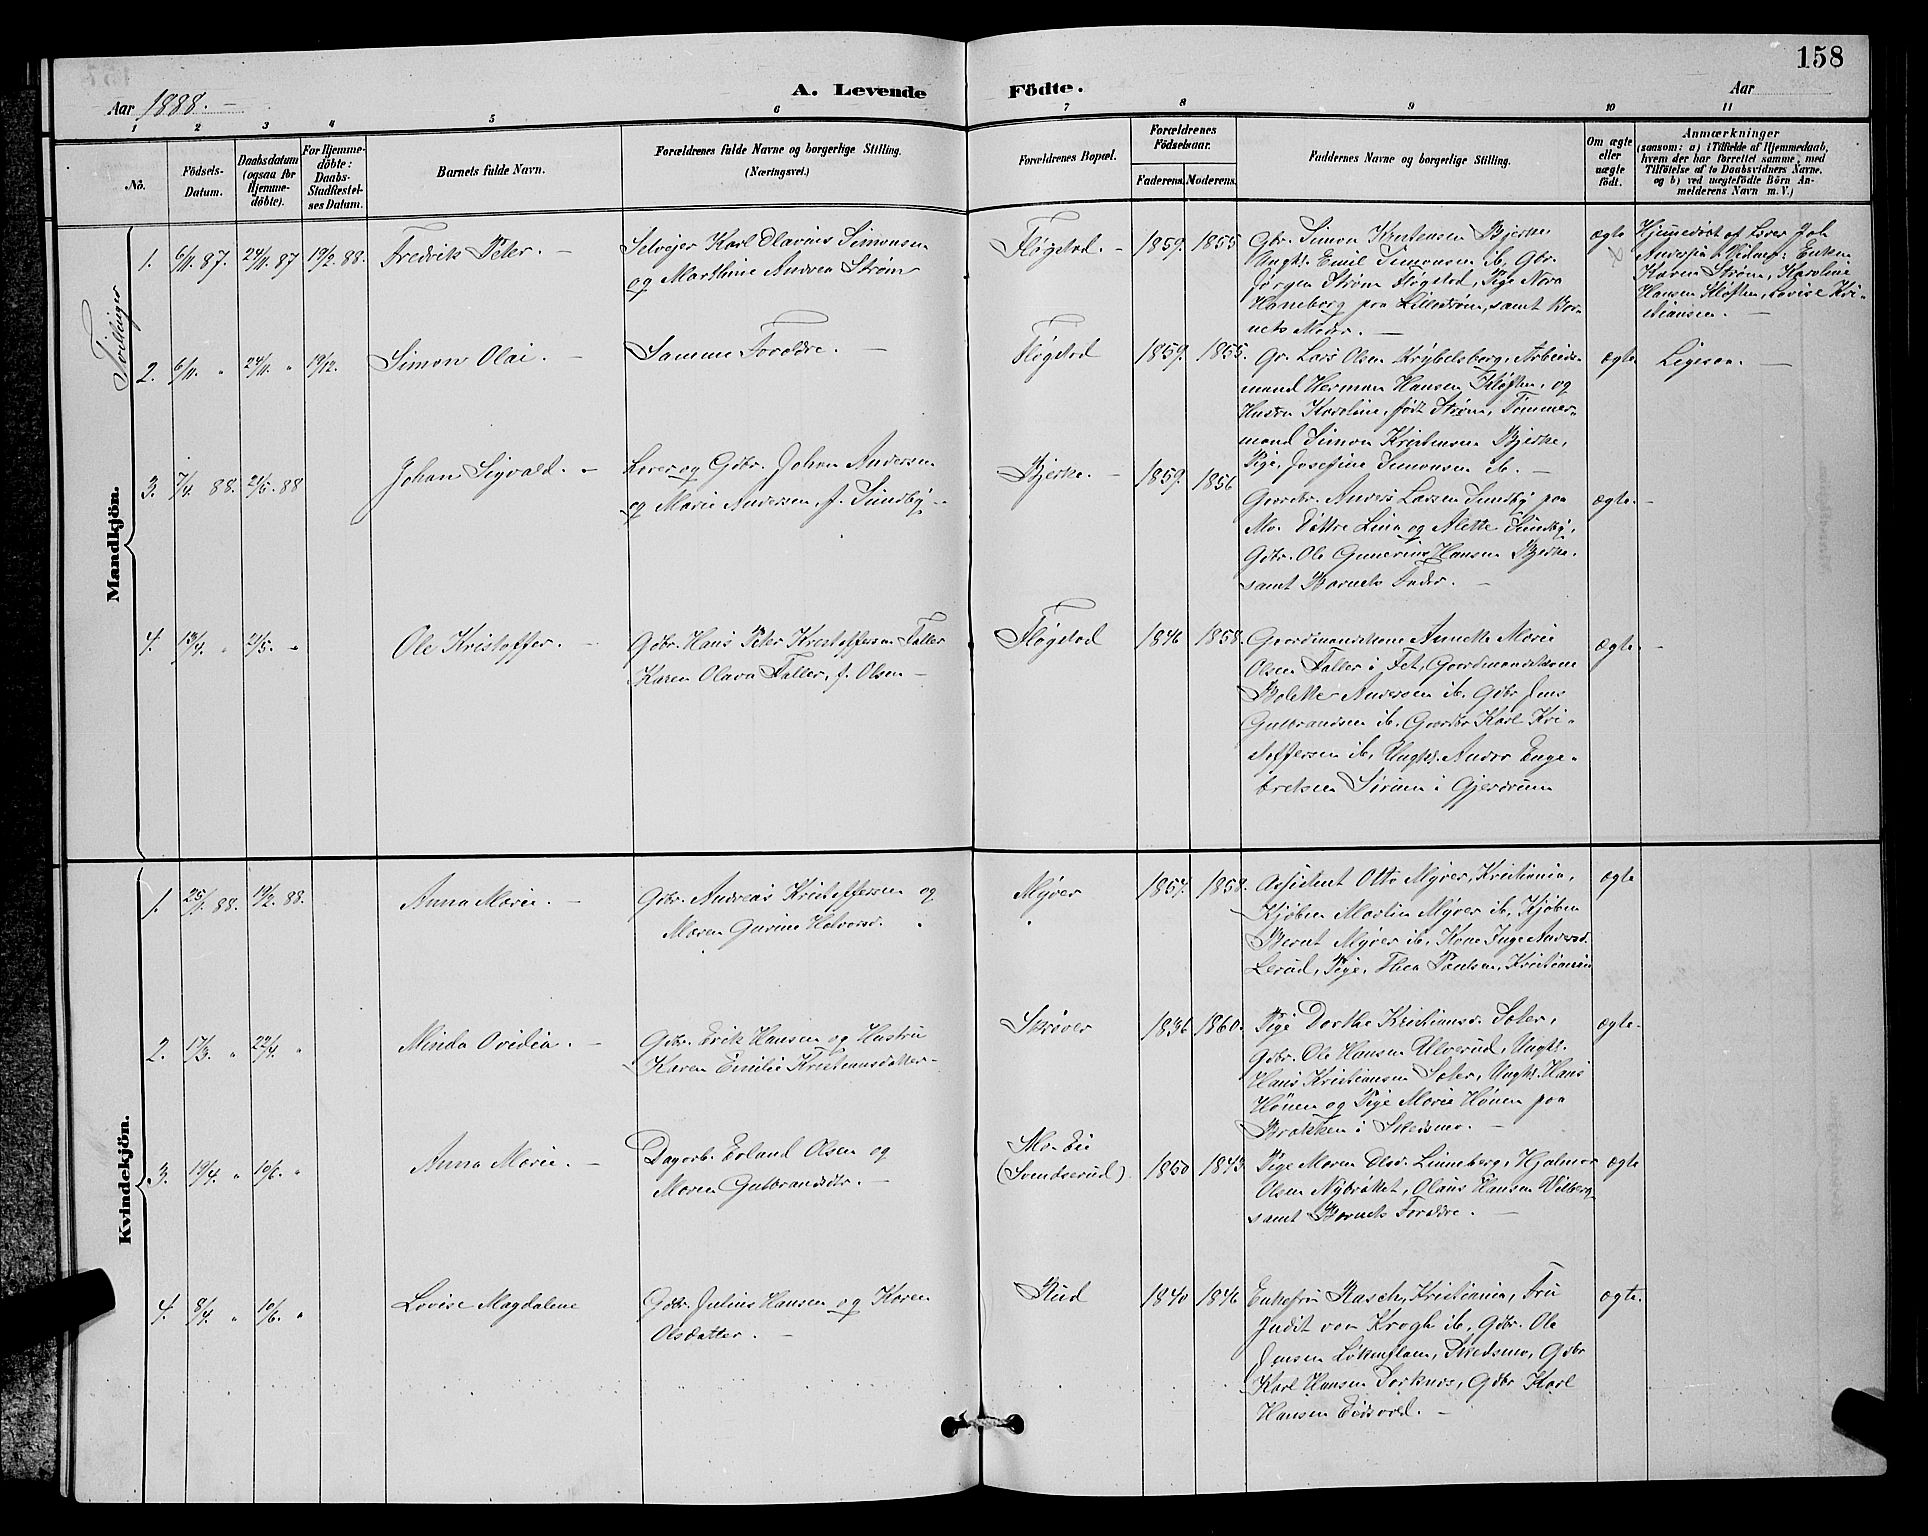 158
Aar 1888. –
A. Levende Födte.
Aar
1 2 3 4 5 6 7 8 9 10 11
No.
Födsels-Datum.
Daabsdatum (ogsaa for Hjemme-döbte).
For Hjemme-döbte: Daabs-Stadfæstel-ses Datum.
Barnets fulde Navn.
Forældrenes fulde Navne og borgerlige Stilling. (Næringsvei.)
Forældrenes Bopæl.
Forældrenes Födselsaar.
Faderens. Moderens.
Faddernes Navne og borgerlige Stilling.
Om ægte eller uægte födt.
Anmærkninger
(saasom: a) i Tilfælde af Hjemmedaab, hvem der har forrettet samme, med Tilföielse af to Daabsvidners Navne, og b) ved uægtefödte Börn An-melderens Navn m. V.)
Mandkjön.
Tvillinger
1. 6/11. 87. 24/11. 87 19/2. 88. Fredrik Peter. –
Selvejer Karl Olavius Simonsen
og Marthine Andrea Strøm
Fløgstad. – 1859. 1855
Gbr. Simon Kristensen Bjerke
Ungk. Emil Simonsen ib. Gbr.
Jørgen Strøm Fløgstad, Pige Nora
Haneborg paa Lillestrøm, samt Bar-
nets Moder. –
ægte
Hjemmedøbt af Lærer Joh.
Karen Strøm, Karoline
Hansen Kløften, Lovise Kri-
stiansen. –
2. 6/11 " 24/11 " 19/2. Simon Olai. –
Samme Forældre. –
Fløgstad 1859. 1855.
Gr. Lars Olsen Krybelsberg, Arbeids-
mand Herman Hansen Kløften, og
Hustru Karoline, født Strøm, Tømmer-
mand Simon Kristensen Bjerke,
Pige, Josefine Simonsen ib. –
ægte Ligesaa. –
3. 7/4 88. 21/5. 88 Johan Sigvald. –
Lærer og Gdbr. Johan Andersen
og Marie Andersen, f. Sundby –
Bjerke. – 1859. 1856
Gaardbr. Anders Larsen Sundby paa
Mo. Døttre Lina og Alette Sundby,
Gdbr. Ole Gunerius Hansen Bjerke.
samt Barnets Fader. –
ægte. –
4. 13/4. " 21/5. " Ole Kristoffer. –
Gdbr. Hans Peter Kristoffersen Faller
Karen Olava Faller, f. Olsen –
Fløgstad 1846 1858.
Gaardmandskone Annette Marie
Olsen Faller i Fet, Gaardmandskone
Bolette Andersen ib. Gdbr Jens
Gulbrandsen ib. Gaardbr Karl Kri-
stoffersen ib, Ungk. Andor Enge-
bretsen Sørum i Gjerdrum
ægte –
Kvindekjön.
1. 25/1. 88. 19/2. 88. Anna Marie. –
Gdbr. Andreas Kristoffersen og
Maren Gurine Halvorsd. "
Myrer 1857. 1858.
Assistent Otto Myrer, Kristiania,
Kjøbm Martin Myrer ib, Kjøbm
Bernt Myrer ib, Kone Inge Andersd.
Lerud, Pige, Thea Paulsen, Kristiania
ægte
2. 17/3. " 22/4. " Minda Ovidia. –
Gdbr. Erik Hansen og Hustru
Karen Emilie Kristiansdatter –
Skrøver 1836 1860.
Pige Dorthe Kristiansd. Sater,
Gdbr. Ole Hansen Ulverud, Ungk.
Hans Kristiansen Sater, Ungk. Hans
Hønen og Pige Marie Hønen paa
Brakken i Skedsmo. –
ægte.
3. 19/4 " 10/6. " Anna Marie. –
Dagarb. Erland Olsen og
Maren Gulbrandsdtr. –
Mo Eie
(Svendserud) 1860 1843
Pige Maren Olsd. Linneberg, Hjalmar
Olsen Nybråttet, Olaus Hansen Vilberg
samt Barnets Forældre. –
ægte
4. 8/4 " 10/6. " Lovise Magdalene
Gdbr. Julius Hansen og Karen
Olsdatter. –
Rud 1840 1846
Enkefru Rasch, Kristiania, Fru
Judit von Krogh ib, Gdbr. Ole
Jensen Løkenflaen, Skedsmo, Gdbr
Karl Hansen Farknes, Gdbr Karl
Hansen Eidsvold. –
ægte.